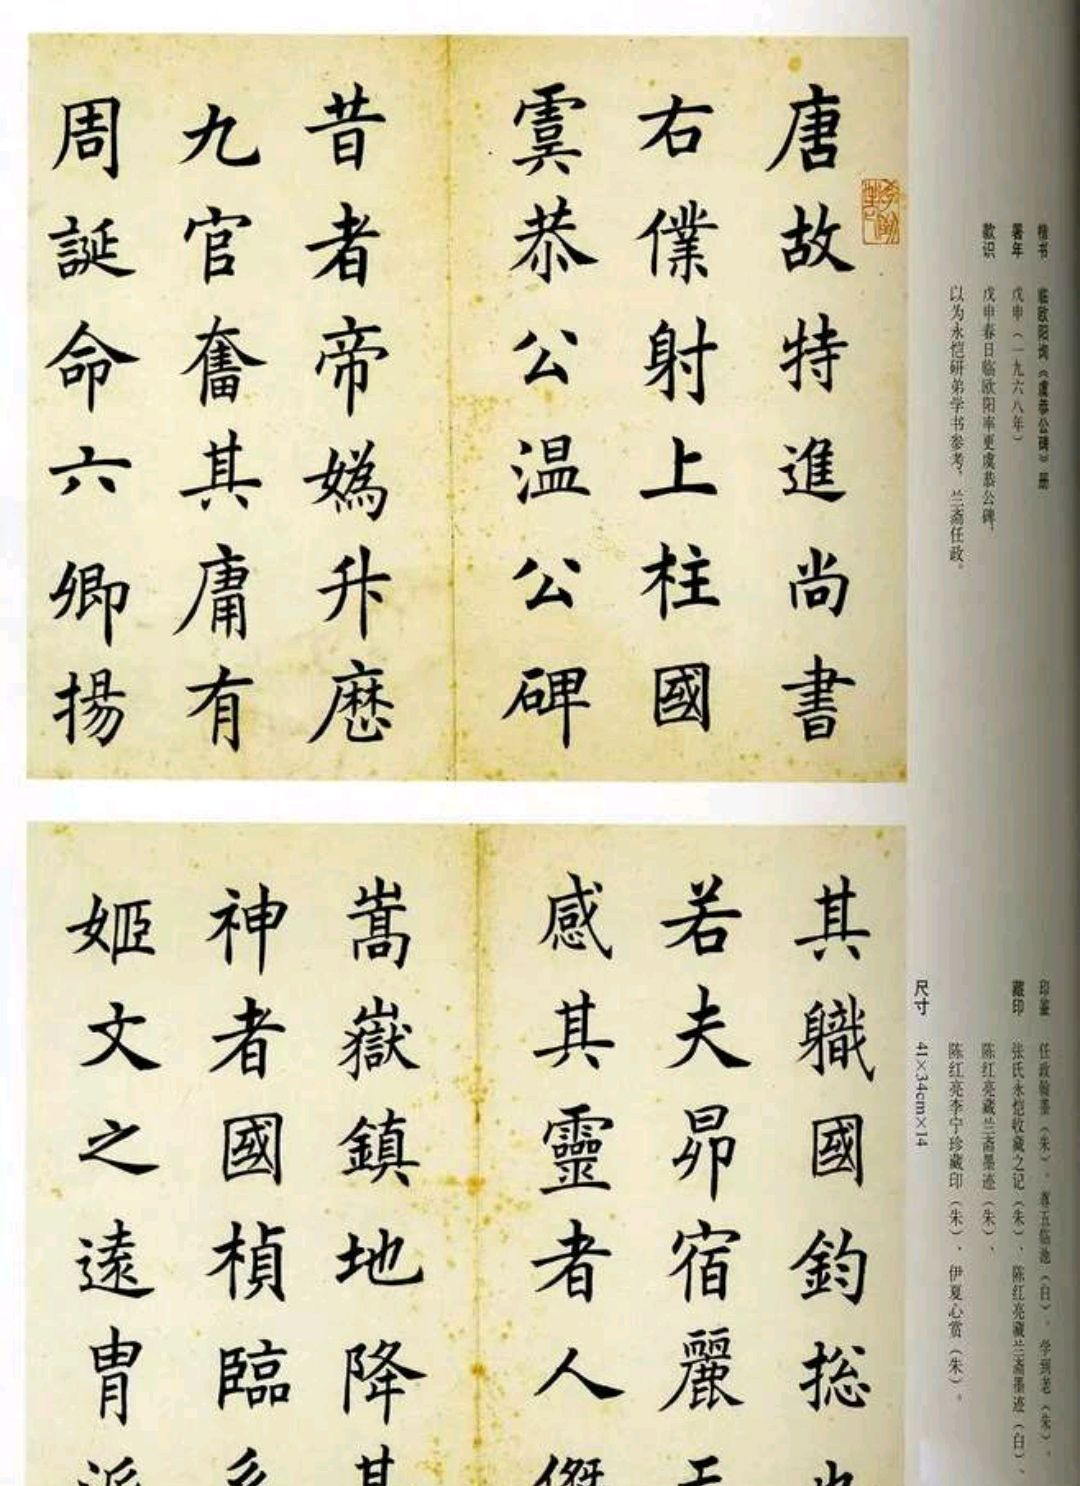 唐故特進尚書
右僕射上柱國
虞恭公温公碑
昔者帝嬀升歷
九官奮其庸有
周誕命六卿揚
楷书 临欧阳询《虞恭公碑》册
署年 戊申（一九六八年）
款识 戊申春日临欧阳率更虞恭公碑，
以为永恺研弟学书参考，兰斋任政。
其職國鈞揔
若夫昴宿麗
感其靈者人傑
嵩嶽鎮地降其
神者國楨臨
姬文之遠胄派
印鉴 任政翰墨（朱）、尊五临池（白）、学到老（朱）、
藏印 张氏永恺收藏之记（朱）、陈红亮藏兰斋墨迹（白）、
陈红亮藏兰斋墨迹（朱）、
陈红亮李宁珍藏印（朱）、伊夏心赏（朱）。
尺寸 41×34cm×14